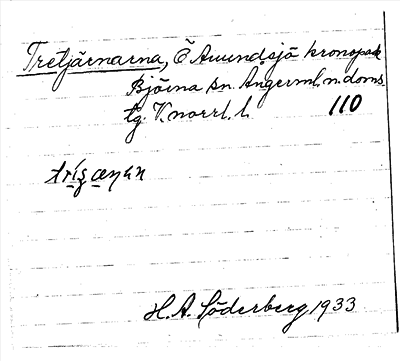 Tretjärnarna, Ö Amundsjö kronopark
Björna sn. Ångerml. n. doms.
tg. V.norrl. l. 110
H. A. Söderberg 1933